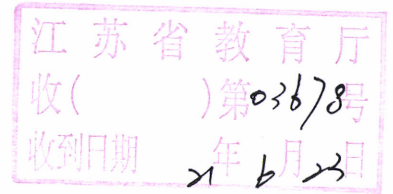 江苏省教育厅
收( )第03678号
收到日期 21年6月23日